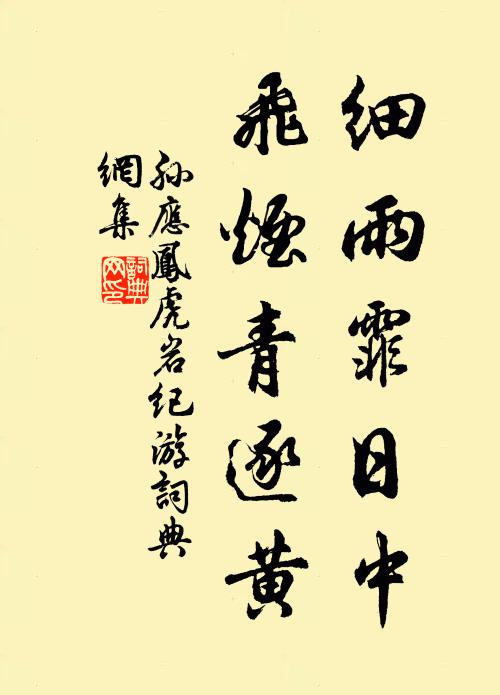 細雨霏日中
飛煙青逐黃
孙應鳳虎岩纪游詞典
網集
詞典
网印